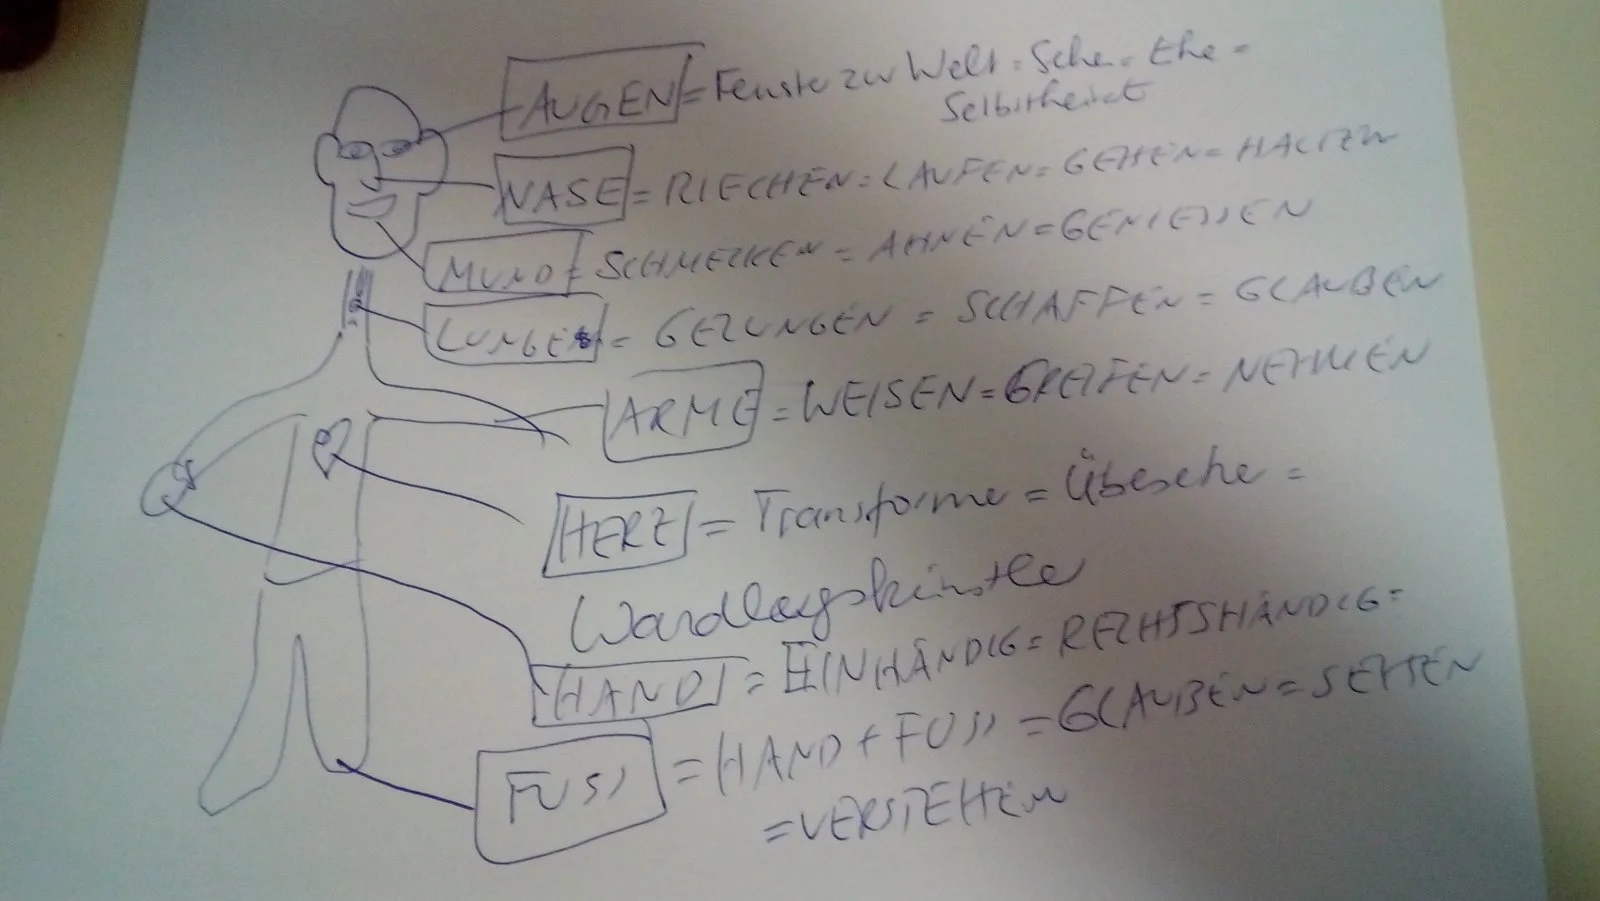 AUGEN = Fenster zur Welt = Sehe = Ehe =
Selbstheirat
NASE = RIECHEN = LAUFEN = GEHEN =
MUND = SCHMECKEN = AHNEN = GENIESSEN
LUNGE = GEZUNGEN = SCHAFFEN = GLAUBEN
ARME = WEISEN = GREIFEN = NEHMEN
HERZ = Transforme =
HAND = EINHÄNDIG = RECHTSHÄNDIG =
FUSS = HAND + FUSS = GLAUBEN = SEHEN
= VERSTEHEN